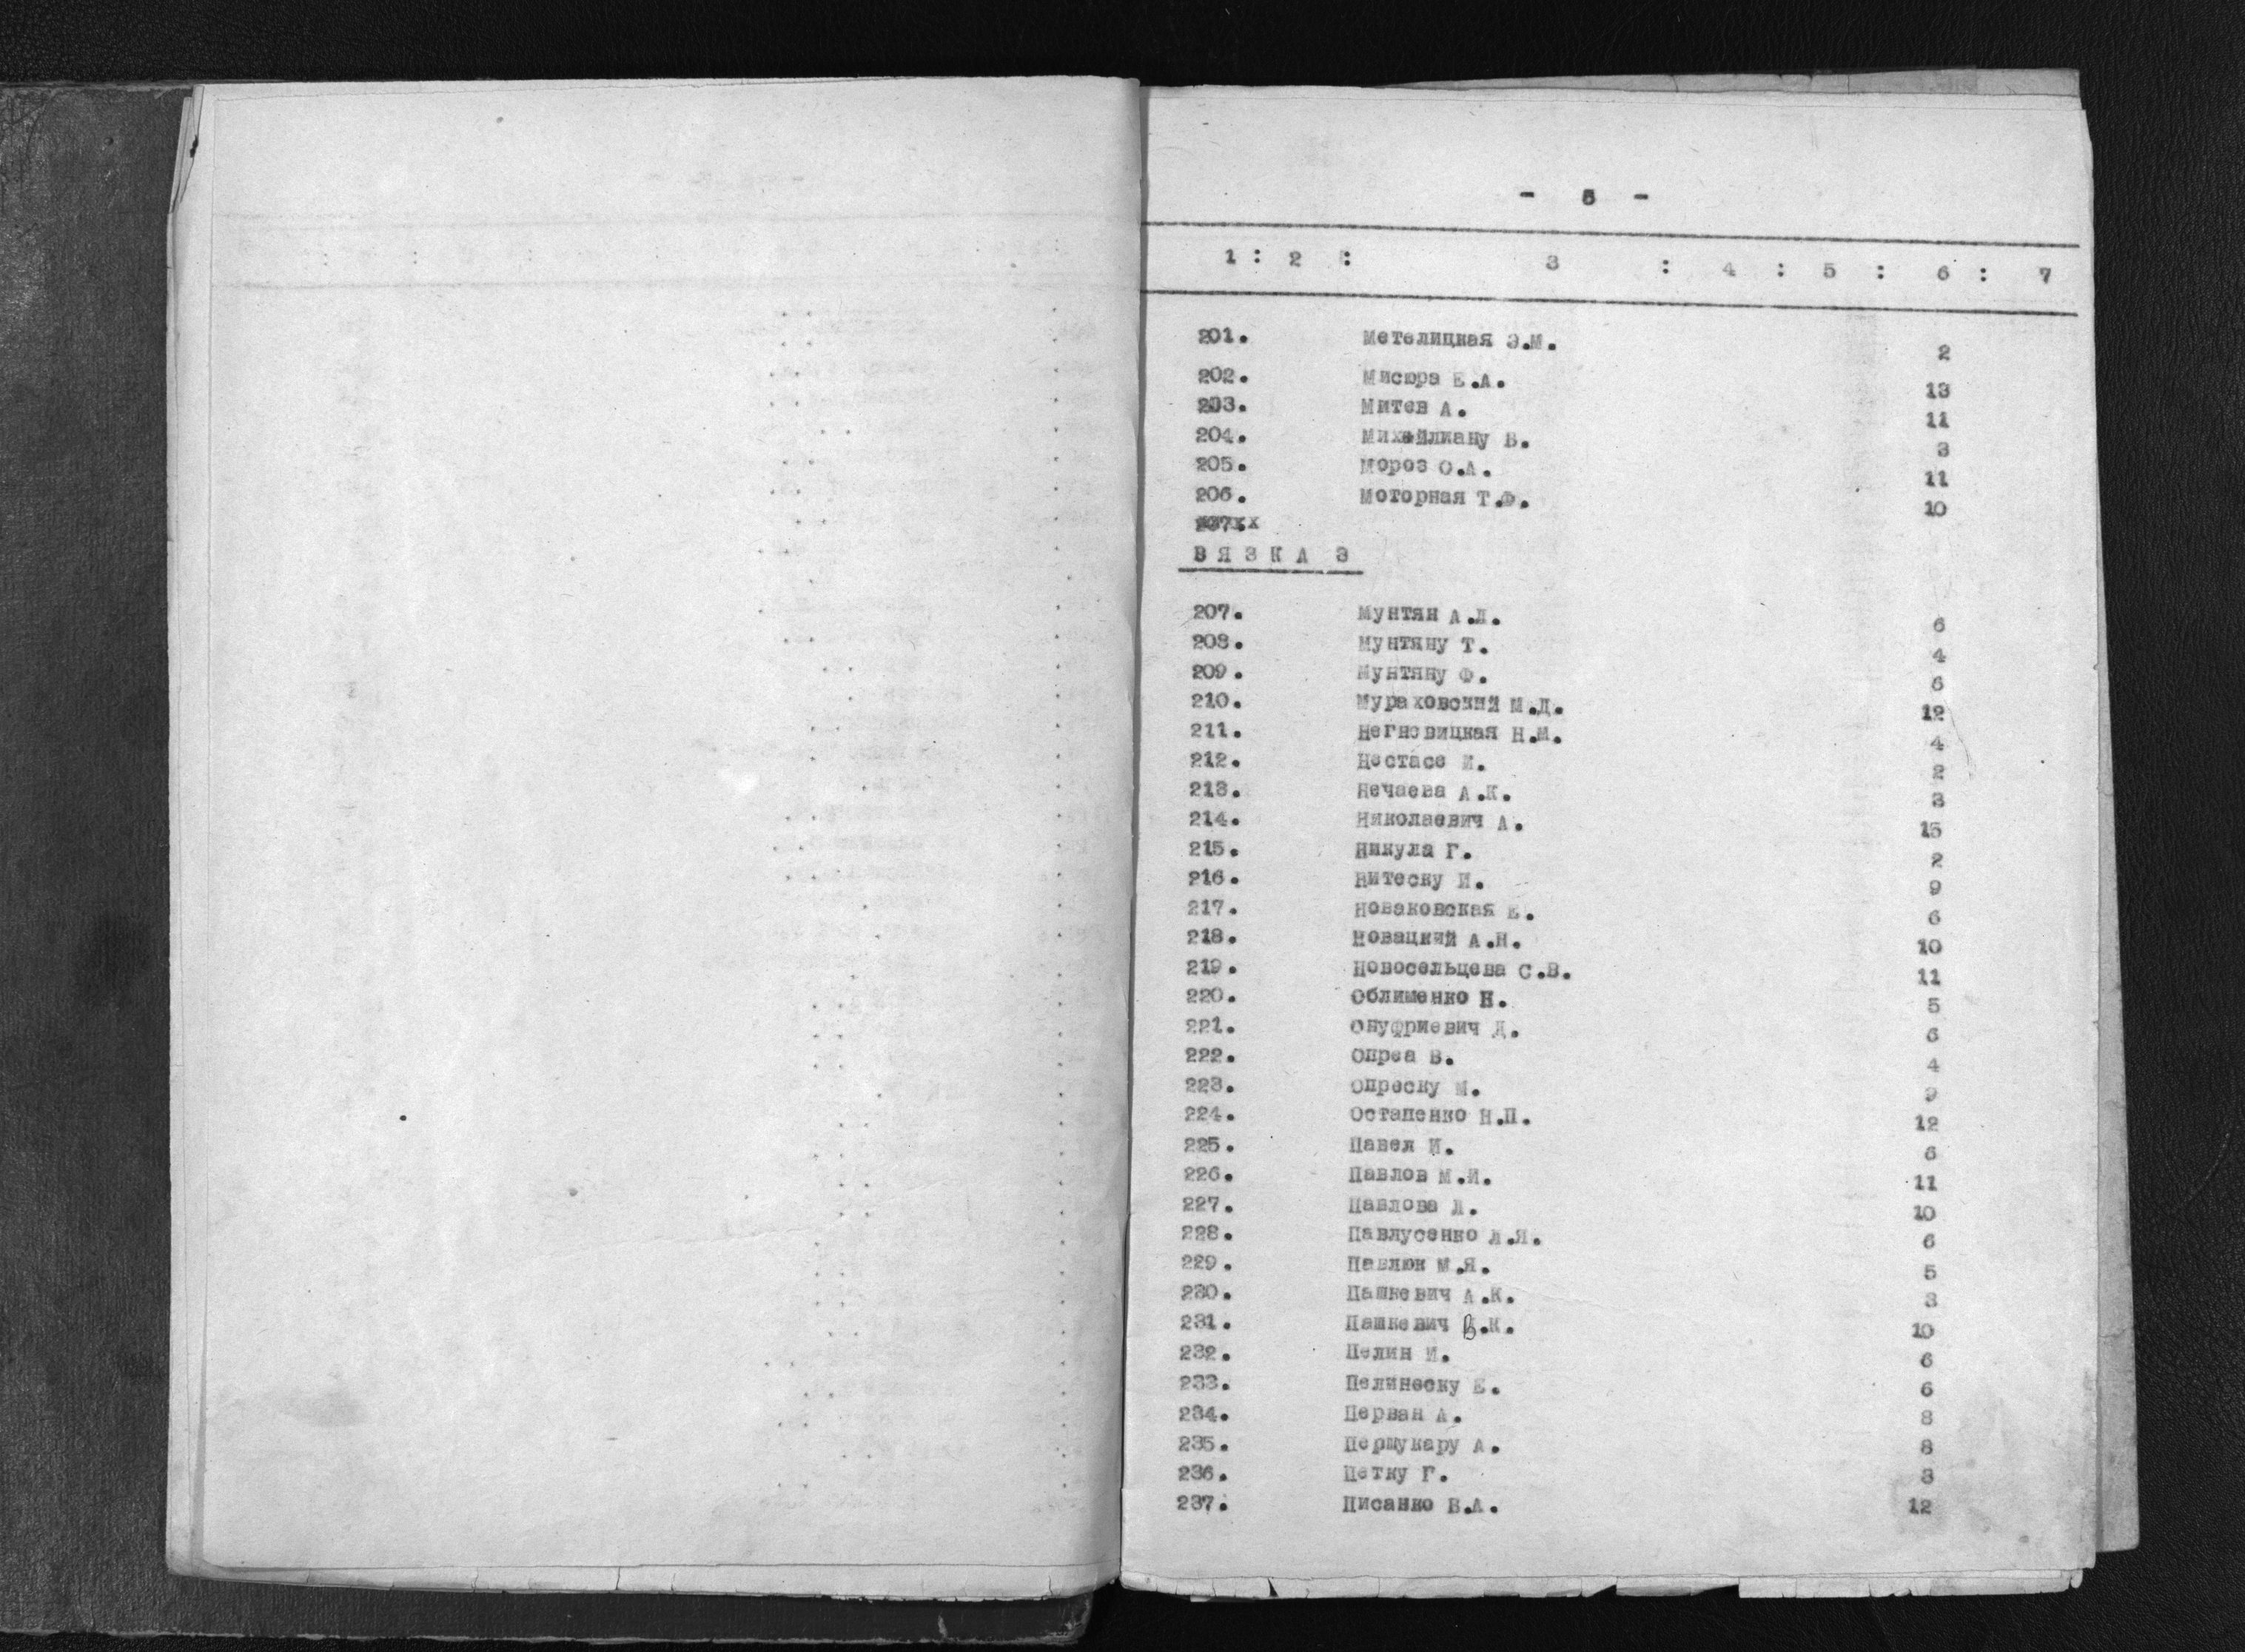 - 8 -
1 : 2 : 3 : 4 : 5 : 6 : 7
201. Метелицкая Э.М. 2
202. Мисюра Е.А. 13
203. Митев А. 11
204. Михайлиану В. 3
205. Мороз О.А. 11
206. Моторная Т.Ф. 10
ВЯЗКА 3
207. Мунтян А.Д. 6
208. Мунтяну Т. 4
209. Мунтяну Ф. 6
210. Мураховский М.Д. 12
211. Негновицкая Н.М. 4
212. Нестасе И. 2
213. Нечаева А.К. 3
214. Николаевич А. 15
215. Никула Г. 2
216. Нитеску И. 9
217. Новаковская Е. 6
218. Новацкий А.Н. 10
219. Новосельцева С.В. 11
220. Облименко Н. 5
221. Онуфриевич Д. 6
222. Опреа В. 4
223. Опреску М. 9
224. Остапенко Н.П. 12
225. Павел И. 6
226. Павлов М.И. 11
227. Павлова Л. 10
228. Павлусенко Л.Я. 6
229. Павлюк М.Я. 5
230. Пашкевич А.К. 3
231. Пашкевич В.К. 10
232. Пелин И. 6
233. Пелинеску Е. 6
234. Перван А. 8
235. Першукару А. 8
236. Петку Г. 3
237. Писанко В.А. 12